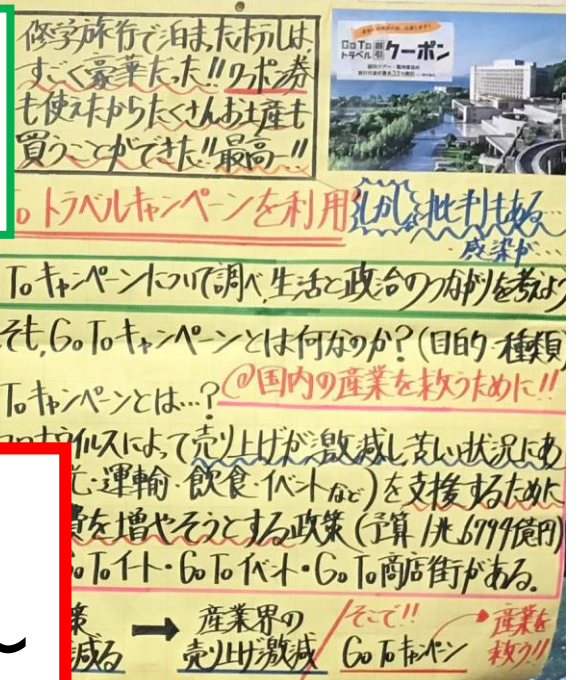 修学旅行で泊まったホテルは、
すごく豪華だった!!クーポン券
も使えたからたくさんお土産も
買うことができた!!最高ー!!
Go To
トラベル
クーポン
o トラベルキャンペーンを利用
しかし、批判もある…
感染が…
Toキャンペーンについて調べ、生活と政治のつながりを考えよう
そも、GoToキャンペーンとは何なのか?(目的・種類)
Toキャンペーンとは…?
@国内の産業を救うために!!
ロナウイルスによって売り上げが激減し、苦しい状況にあ
・運輸・飲食・イベントなど)を支援するために
費を増やそうとする政策(予算1兆6794億円)
GoToイート・GoToイベント・GoTo商店街がある。
策
減る
➡ 産業界の
売り上げ激減
そこで!!
GoToキャンペーン
産業を
救う!!